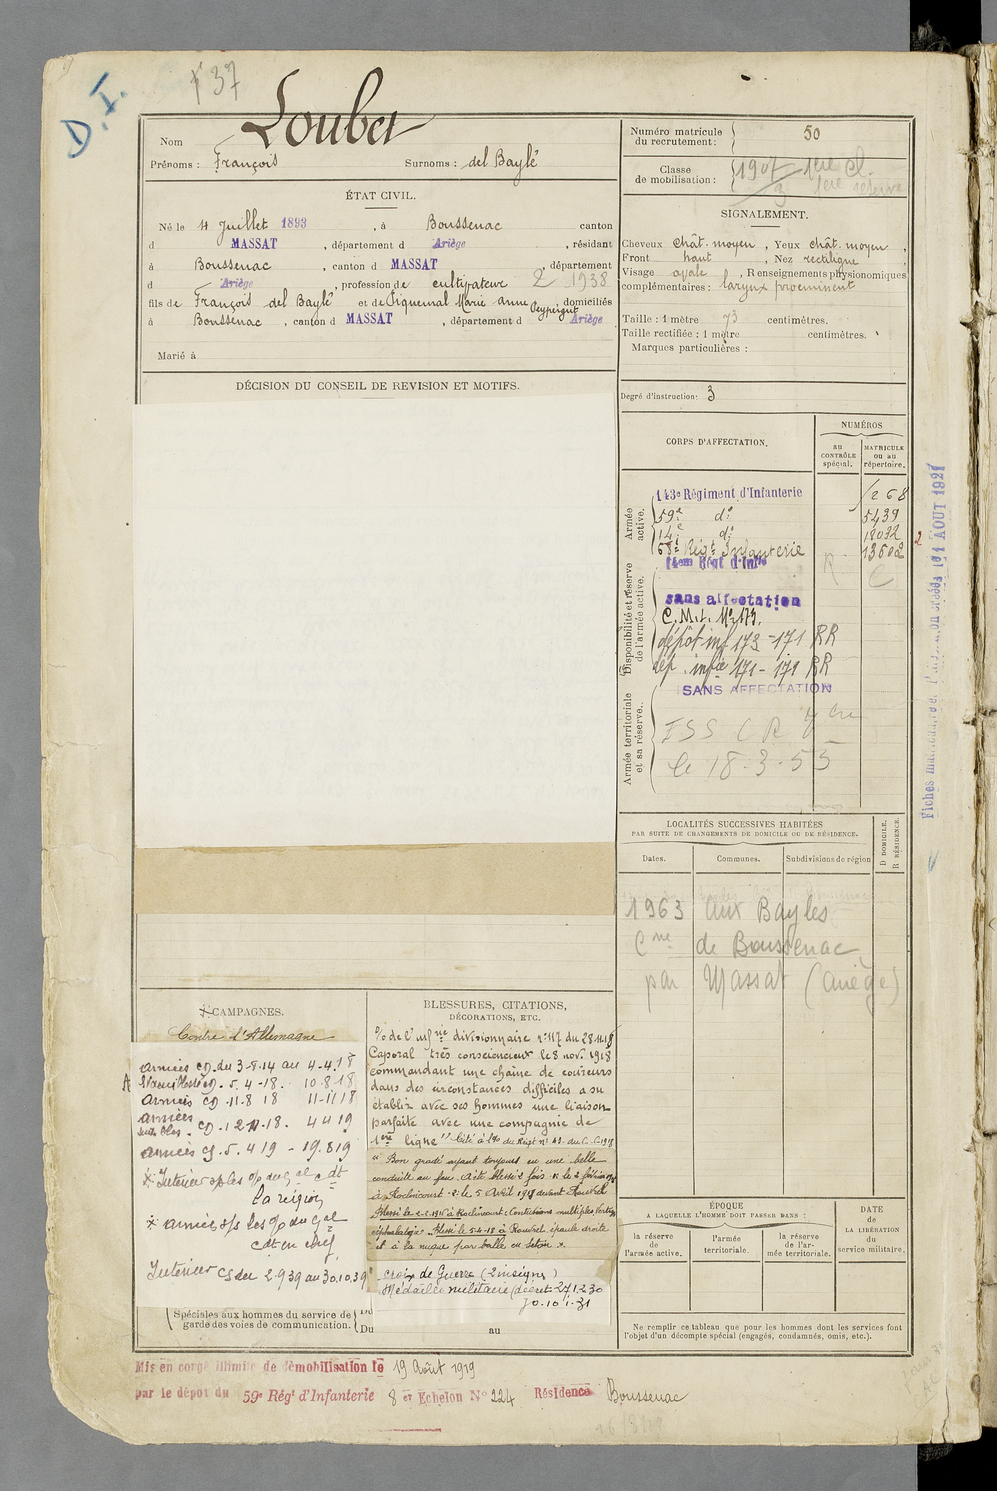 D.I.
137
Nom Loubet
Prénoms : François Surnoms : del Baylé
ÉTAT CIVIL.
Né le 4 Juillet 1893, à Boussenac canton
d MASSAT, département d Ariège, résidant
à Boussenac, canton d MASSAT, département
d Ariège, profession de cultivateur 2 1938
fils de François del Baylé et de Piquemal Marie anne Peypergut, domiciliés
à Boussenac, canton d MASSAT, département d Ariège
Marié à
DÉCISION DU CONSEIL DE REVISION ET MOTIFS.
CAMPAGNES.
Contre l'Allemagne
armées CD. du 3-8-14 au 4-4-18
A Intérieur CD. 5-4-18. 10-8-18
armées CD 11-8 18 11-11 18
armées CD. 12-11-18. 4 4 19
armées CS. 5.4 19 - 19.8 19
* Intérieur s/s les o/ du Gal cdt
la région
* armées s/s les o/ du Gal
cdt en chef
Intérieur CS du 2.9 39 au 30.10.39
Spéciales aux hommes du service de
garde des voies de communication.
Du
Du au
BLESSURES, CITATIONS,
DÉCORATIONS, ETC.
% de l'infrie divisionnaire n° 117 du 28.11.18
Caporal très consciencieux le 8 nov. 1918
commandant une chaîne de coureurs
dans des circonstances difficiles a su
établir avec ses hommes une liaison
parfaite avec une compagnie de
1ère ligne" Cité à l'% du Régt n° 41 du
" Bon gradé ayant toujours eu une belle
conduite au feu. A été blessé 2 fois 1° le 2 février 1915
à Roclincourt 2° le 5 Avril 1918 devant Rouvrel
Blessé le 2-2-1915 à Roclincourt : Contusions multiples
céphalalgie. Blessé le 5-4-18 à Rouvrel épaule droite
et à la nuque par balle en séton.
croix de Guerre (2 insignes)
Médaille militaire (décret 27.12.30
J.O. 10.1.31
Numéro matricule
du recrutement : 50
Classe
de mobilisation : 1907 1ere cl.
3 1ere réserve
SIGNALEMENT.
Cheveux chât. moyen, Yeux chât. moyen,
Front haut, Nez rectiligne,
Visage ovale, Renseignements physionomiques
complémentaires : larynx proéminent
Taille : 1 mètre 73 centimètres.
Taille rectifiée : 1 mètre centimètres.
Marques particulières :
Degré d'instruction : 3
CORPS D'AFFECTATION.
NUMÉROS
AU CONTRÔLE spécial.
MATRICULE ou au répertoire.
Armée active.
143e Régiment d'Infanterie 1268
59e d° 5439
14e d° 12032
68e Régt Infanterie 13602
2
Disponibilité et réserve de l'armée active.
14eme Régt d'Infie R C
sans affectation
C.M.I. N° 173.
dépôt inf 173-171 RR
dép. infie 171-171 RR
SANS AFFECTATION
Armée territoriale et sa réserve.
FSS CR
le 18-3-55
Fiches 1er AOUT 1921
LOCALITÉS SUCCESSIVES HABITÉES
PAR SUITE DE CHANGEMENTS DE DOMICILE OU DE RÉSIDENCE.
Dates. Communes. Subdivisions de région
D DOMICILE.
R RÉSIDENCE.
1963 aux Bayles
Cne de Boussenac
par Massat (Ariège)
ÉPOQUE
A LAQUELLE L'HOMME DOIT PASSER DANS :
la réserve de l'armée active.
l'armée territoriale.
la réserve de l'armée territoriale.
DATE de LA LIBÉRATION du service militaire.
Ne remplir ce tableau que pour les hommes dont les services font
l'objet d'un décompte spécial (engagés, condamnés, omis, etc.).
Mis en congé illimité de démobilisation le 19 Août 1919
par le dépôt du 59e Régt d'Infanterie 8 er Echelon N° 224 Résidence Boussenac